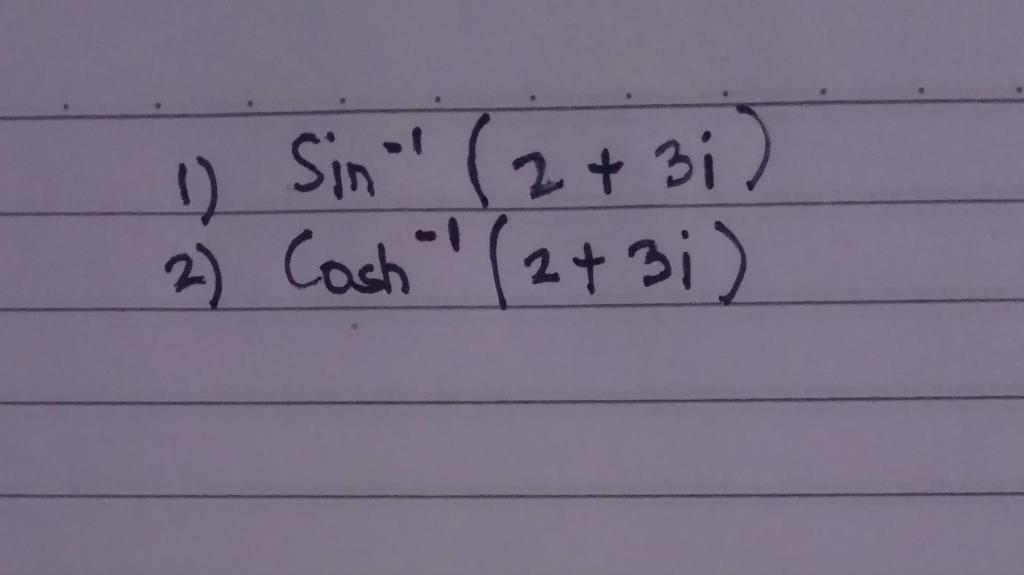 1) Sin⁻¹ (2 + 3i)
2) Cosh⁻¹ (2 + 3i)